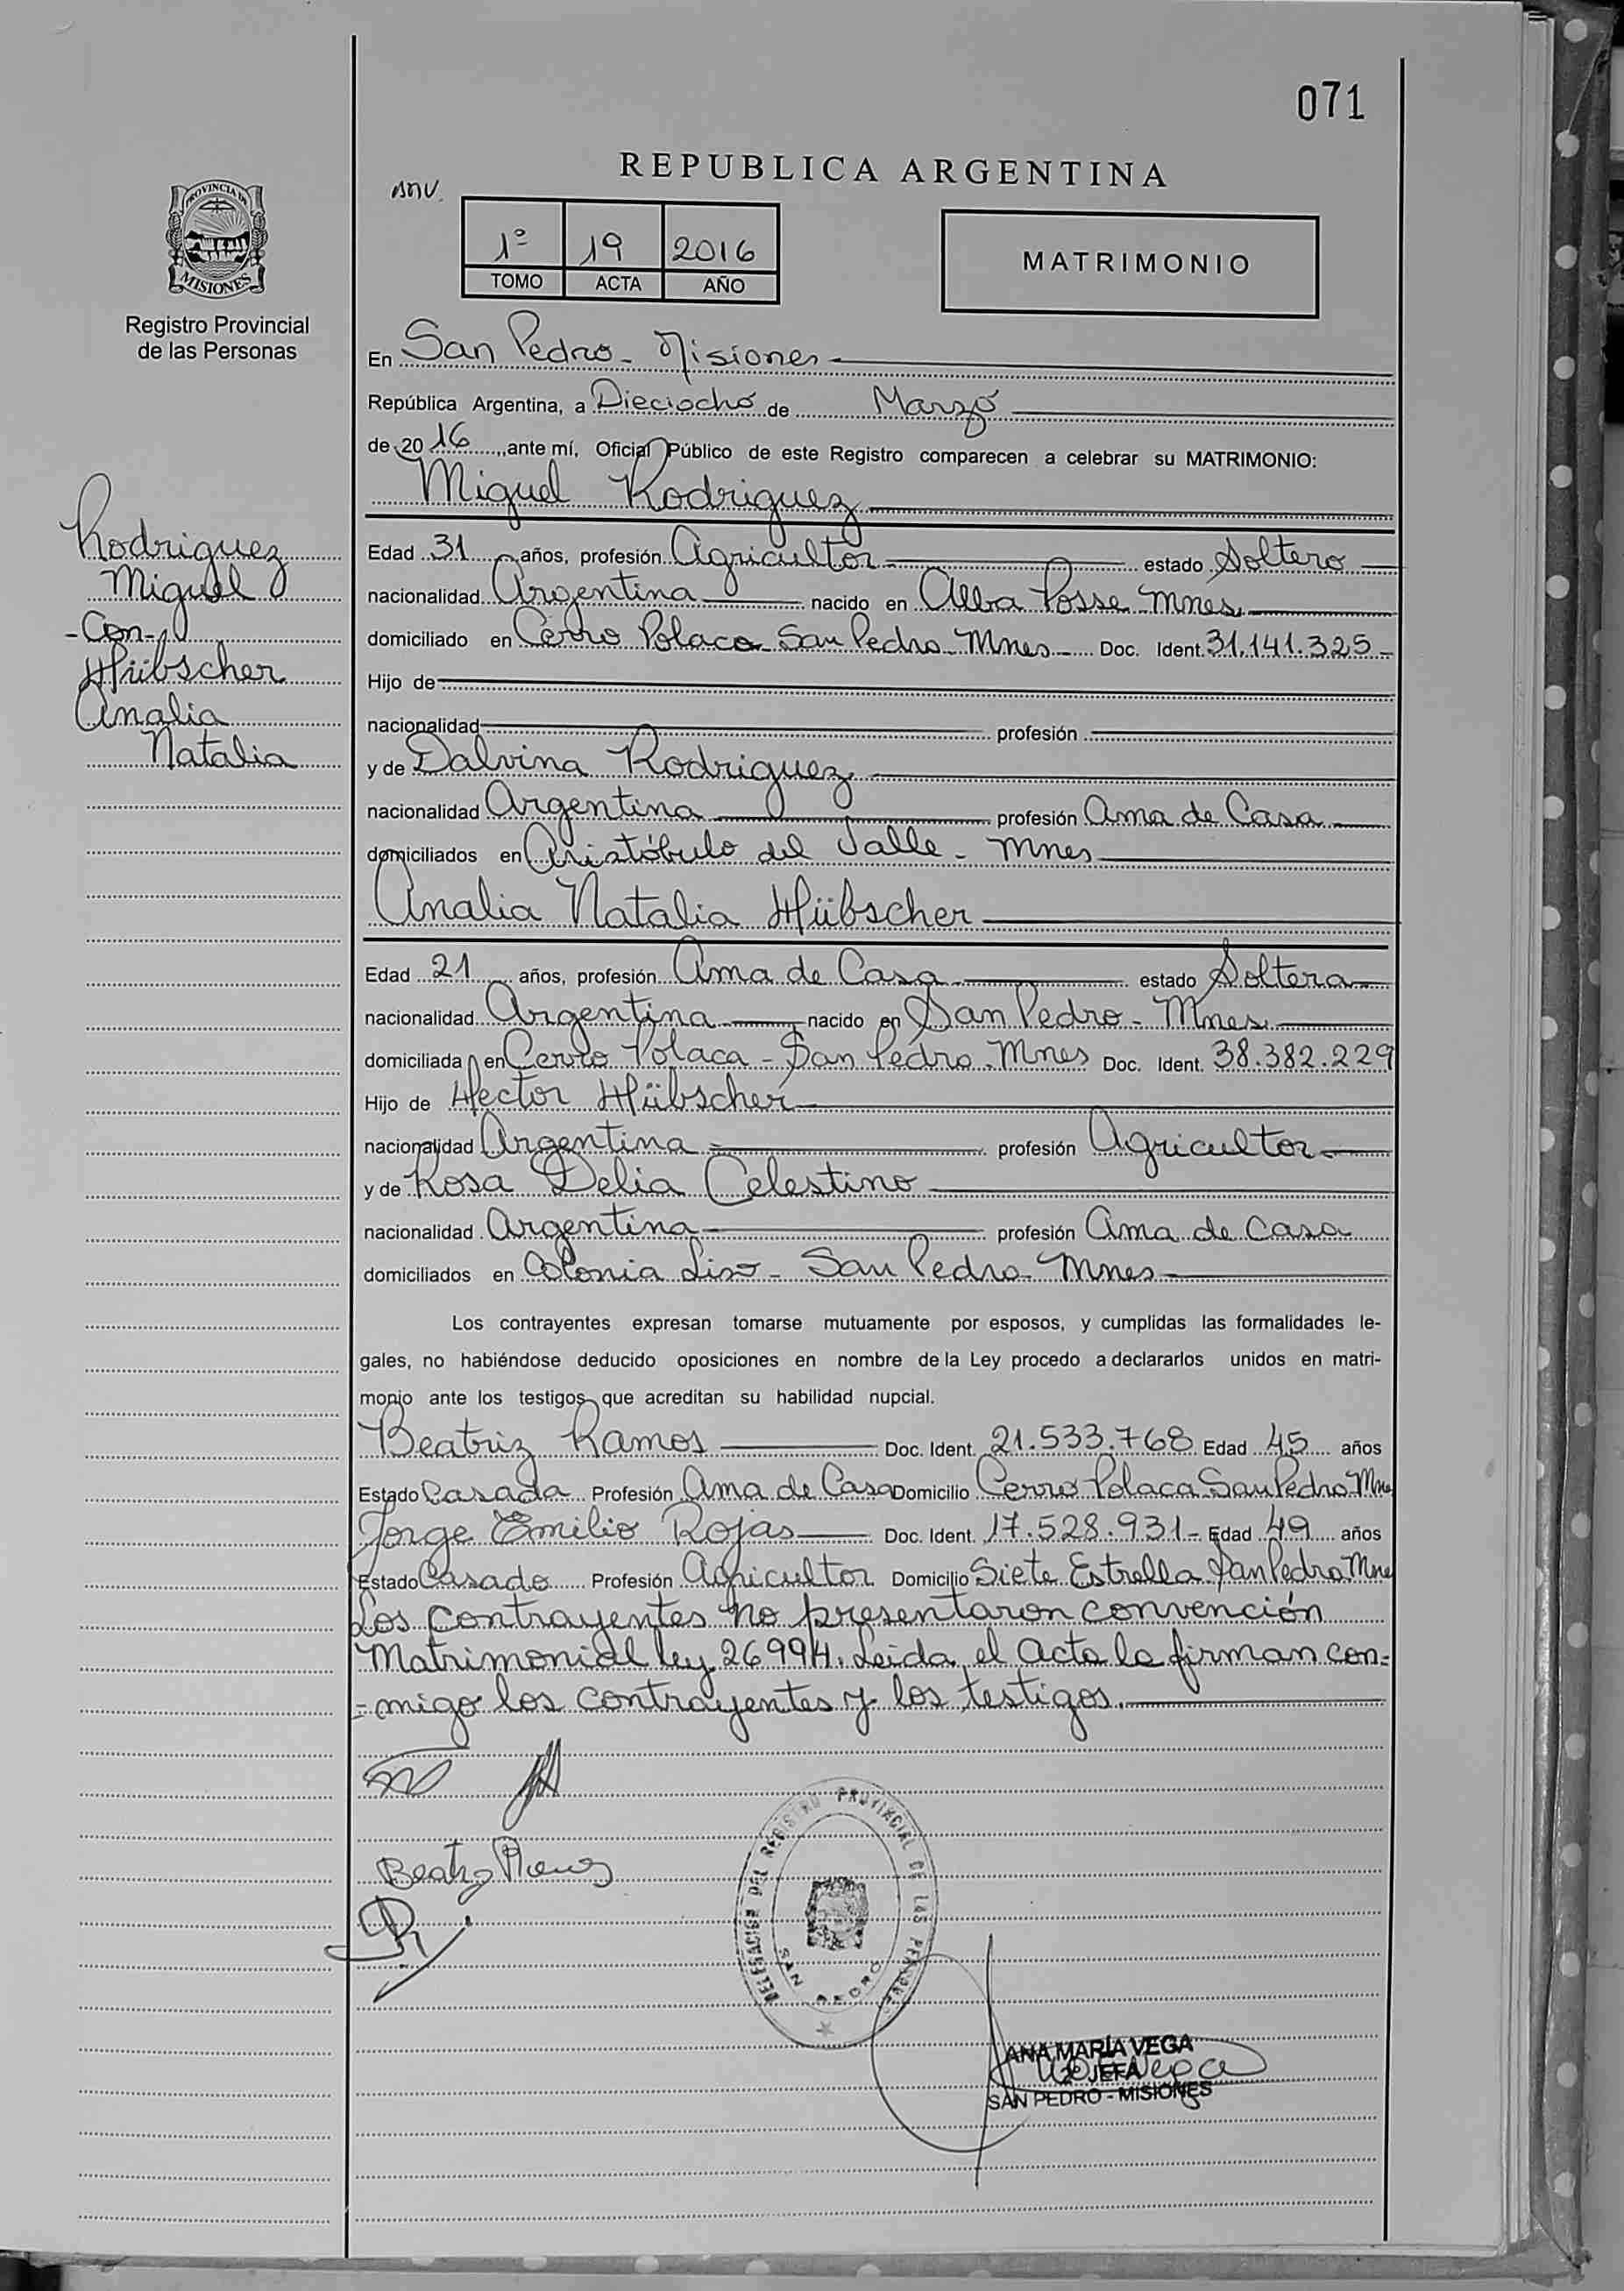 071
REPUBLICA ARGENTINA
PROVINCIA DE
MISIONES
Registro Provincial
de las Personas
1º 19 2016
TOMO ACTA AÑO
MATRIMONIO
En San Pedro - Misiones
República Argentina, a Dieciocho de Marzo
de 2016, ante mí, Oficial Público de este Registro comparecen a celebrar su MATRIMONIO:
Miguel Rodriguez
Rodriguez
Miguel
- Con -
Hübscher
Analia
Natalia
Edad 31 años, profesión Agricultor estado Soltero
nacionalidad Argentina nacido en Alba Posse Mnes
domiciliado en Cerro Polaca San Pedro - Mnes - Doc. Ident. 31.141.325 -
Hijo de
nacionalidad profesión
y de Dalvina Rodriguez
nacionalidad Argentina profesión Ama de Casa
domiciliados en Aristóbulo del Valle - Mnes
Analia Natalia Hübscher
Edad 21 años, profesión Ama de Casa estado Soltera
nacionalidad Argentina nacido en San Pedro - Mnes
domiciliada en Cerro Polaca - San Pedro - Mnes Doc. Ident. 38.382.229
Hijo de Hector Hübscher
nacionalidad Argentina profesión Agricultor
y de Rosa Delia Celestino
nacionalidad Argentina profesión Ama de Casa
domiciliados en Colonia Liso - San Pedro - Mnes
Los contrayentes expresan tomarse mutuamente por esposos, y cumplidas las formalidades le-
gales, no habiéndose deducido oposiciones en nombre de la Ley procedo a declararlos unidos en matri-
monio ante los testigos que acreditan su habilidad nupcial.
Beatriz Ramos Doc. Ident. 21.533.768 Edad 45 años
Estado Casada Profesión Ama de Casa Domicilio Cerro Polaca San Pedro Mnes
Jorge Emilio Rojas Doc. Ident. 17.528.931 - Edad 49 años
Estado Casado Profesión Agricultor Domicilio Siete Estrella San Pedro Mnes
Los contrayentes no presentaron convención
Matrimonial ley 26994. Leida el Acta la firman con=
=migo los contrayentes y los testigos.
DELEGACION DEL REGISTRO PROVINCIAL DE LAS PERSONAS
SAN PEDRO
ANA MARÍA VEGA
2º JEFA
SAN PEDRO - MISIONES